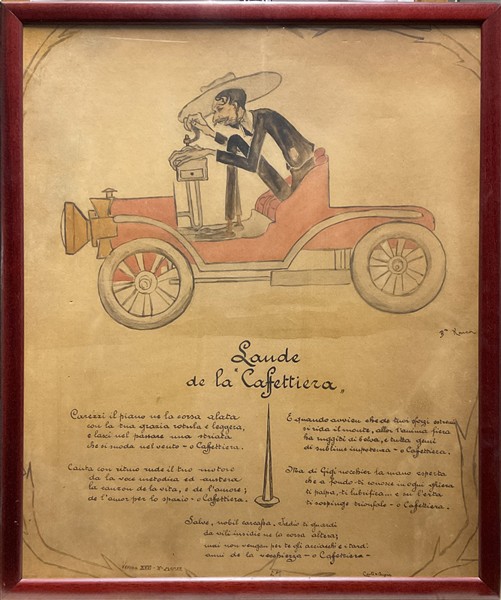 Laude
de la "Caffettiera"
Carezzi il piano ne la corsa alata
con la tua grazia rotula e leggera,
e lasci nel passare una striata
che si snoda nel vento - o Caffettiera.
Canta con ritmo rude il tuo motore
da la voce metodica ed austera
la canzon de la vita, e de l'amore;
de l'amor per lo spazio - o Caffettiera.
E quando avvien che de tuoi sforzi estremi
si rida il monte, allor l'anima fiera
ha ruggiti di belva, e tutta gemi
di sublime impotenza - o Caffettiera.
Ma di Gigi nocchier la mano esperta
che a fondo ti conosce in ogni ghiera
ti palpa, ti lubrifica e su l'erta
ti sospinge trionfale - o Caffettiera.
Salve, nobil carcassa. Iddio ti guardi
da vili insidie ne la corsa altera;
mai non vengan per te gli acciacchi e i tardi
anni de la vecchiezza - o Caffettiera -